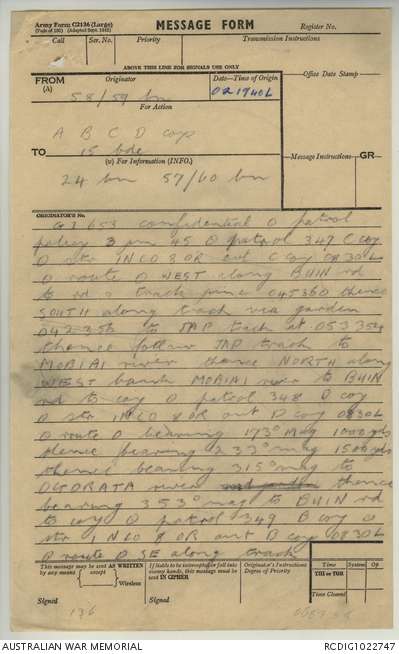 Army Form C2136 (Large)
MESSAGE FORM
Register No.
(Pads of 100) (Adapted Sept. 1942)
Call
Ser. No.
Priority
Transmission Instructions
ABOVE THIS LINE FOR SIGNALS USE ONLY
FROM
(A)
Originator
Date—Time of Origin
Office Date Stamp
58/59 bn
021740L
For Action
A B C D coys
TO
15 bde
(W) For Information (INFO.)
Message Instructions
GR
24 bn 57/60 bn
ORIGINATOR'S No.
G1653 confidential O patrol
policy 3 jun 45 O patrol 347 C coy
O str 1NCO 8 OR out C coy 0830L
O route O WEST along BUIN rd
to rd & track junc 045360 thence
SOUTH along track via garden
042356 to JAP track at 053354
thence follow JAP track to
MOBIAI river thence NORTH along
WEST bank MOBIAI river to BUIN
rd to coy O patrol 348 D coy
O str 1NCO 8 OR out D coy 0830L
O route O bearing 173° mag 1000 yds
thence bearing 233° mag 1500 yds
thence bearing 315° mag to
OGORATA river thence
bearing 353° mag to BUIN rd
to coy O patrol 349 B coy O
str 1 NCO 8 OR out B coy 0830L
O route O SE along track
This message may be sent AS WRITTEN
by any means (except) Wireless
If liable to be intercepted or fall into
enemy hands, this message must be
sent IN CIPHER
Originator's Instructions
Degree of Priority
Time
System
Op
THI or TOR
Time Cleared
Signed
Signed
136
AUSTRALIAN WAR MEMORIAL
RCDIG1022747